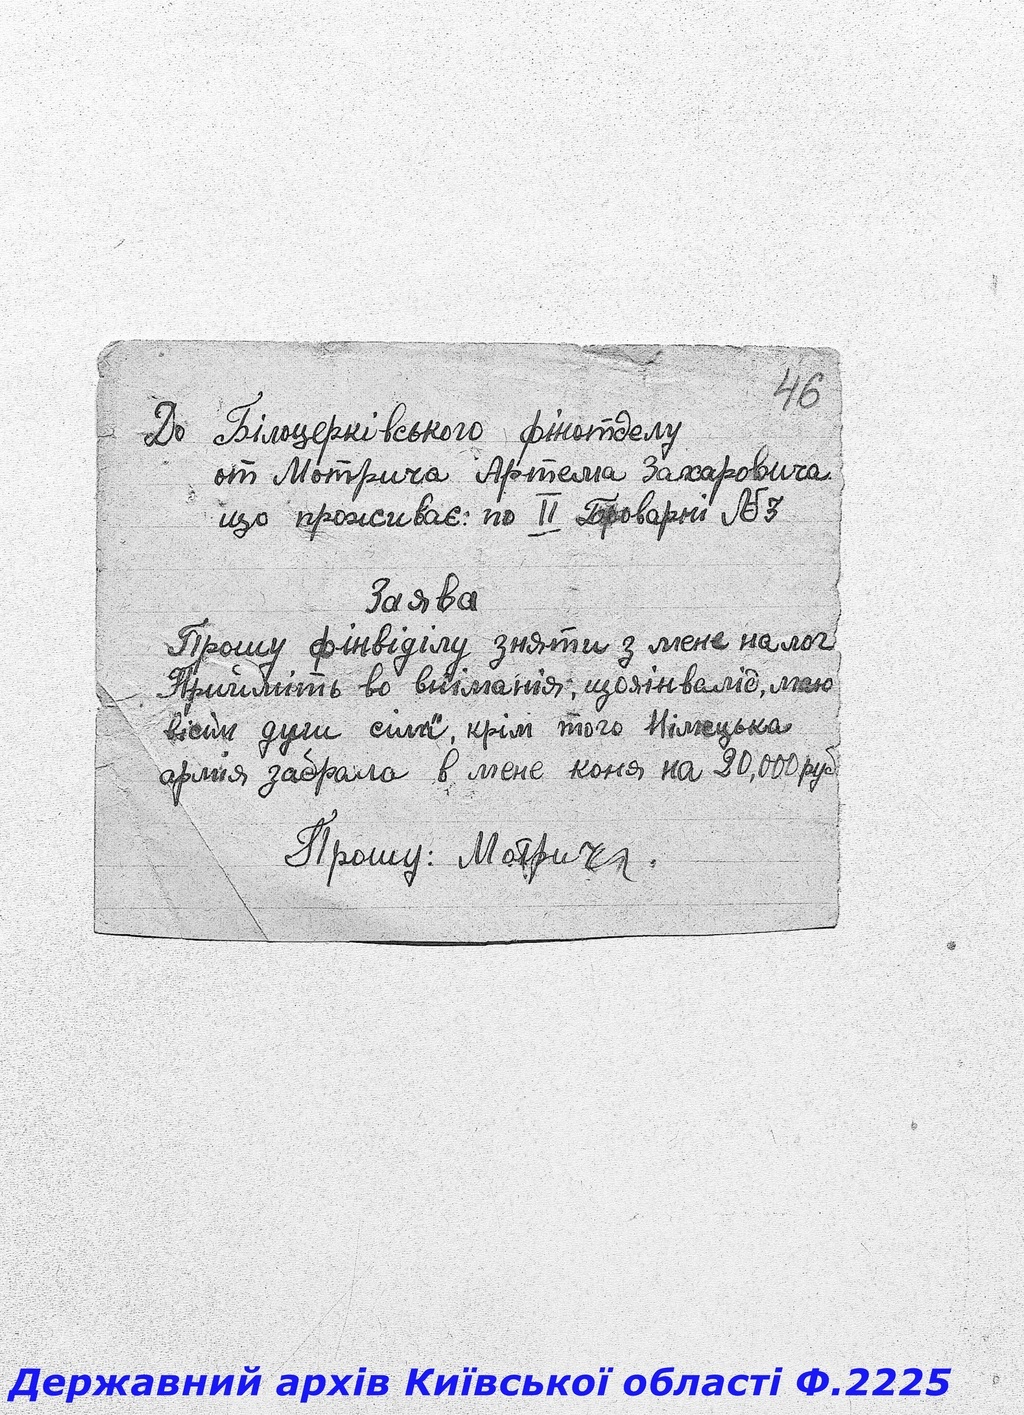 46
До Білоцерківського фінотделу
от Мотрича Артема Захаровича
що проживає: по II Броварні №3
Заява
Прошу фінвіділу зняти з мене налог
Прийміть во вніманія, що я інвалід, маю
вісім душ сімї, крім того Німецька
армія забрала в мене коня на 20,000 руб
Прошу: Мотрич
Державний архів Київської області Ф.2225